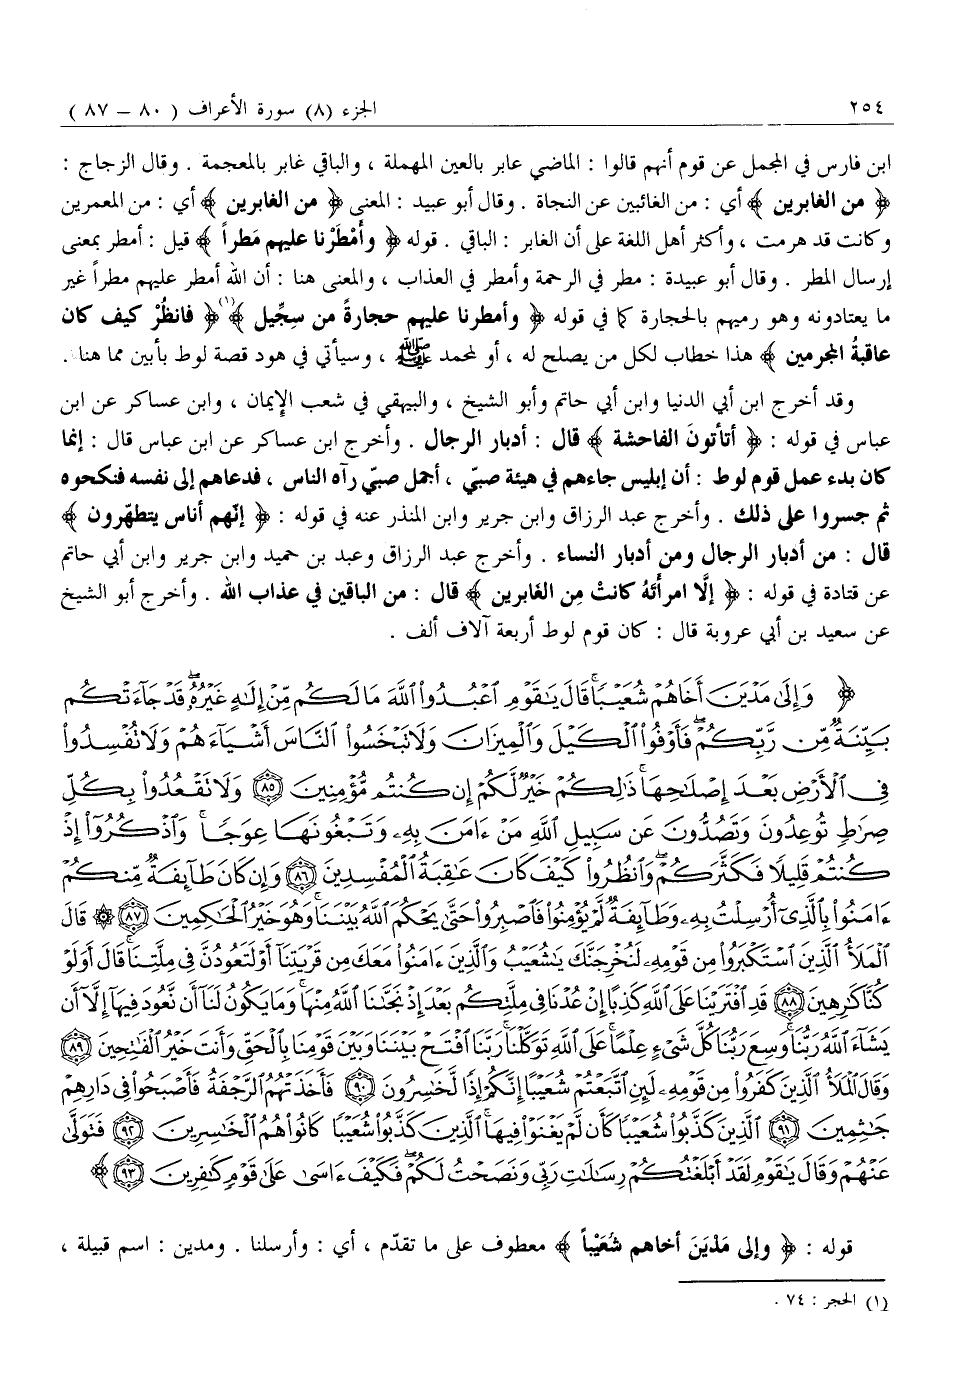 ٢٥٤ الجزء (٨) سورة الأعراف ( ٨٠ – ٨٧ )
ابن فارس في المجمل عن قوم أنهم قالوا : الماضي عابر بالعين المهملة ، والباقي غابر بالمعجمة . وقال الزجاج :
﴿ من الغابرين ﴾ أي : من الغائبين عن النجاة . وقال أبو عبيد : المعنى ﴿ من الغابرين ﴾ أي : من المعمرين
وكانت قد هرمت ، وأكثر أهل اللغة على أن الغابر : الباقي . قوله ﴿ وأَمْطَرْنا عليهم مَطراً ﴾ قيل : أمطر بمعنى
إرسال المطر . وقال أبو عبيدة : مطر في الرحمة وأمطر في العذاب ، والمعنى هنا : أن الله أمطر عليهم مطراً غير
ما يعتادونه وهو رميهم بالحجارة كما في قوله ﴿ وأمطرنا عليهم حجارةً من سجِّيل ﴾(١) ﴿ فانظُرْ كيف كان
عاقبةُ المجرمين ﴾ هذا خطاب لكل من يصلح له ، أو لمحمد ﷺ ، وسيأتي في هود قصة لوط بأبين مما هنا .
وقد أخرج ابن أبي الدنيا وابن أبي حاتم وأبو الشيخ ، والبيهقي في شعب الإيمان ، وابن عساكر عن ابن
عباس في قوله : ﴿ أتأتونَ الفاحشة ﴾ قال : أدبار الرجال . وأخرج ابن عساكر عن ابن عباس قال : إنما
كان بدء عمل قوم لوط : أن إبليس جاءهم في هيئة صبيّ ، أجمل صبيّ رآه الناس ، فدعاهم إلى نفسه فنكحوه
ثم جسروا على ذلك . وأخرج عبد الرزاق وابن جرير وابن المنذر عنه في قوله : ﴿ إنّهم أناس يتطهّرون ﴾
قال : من أدبار الرجال ومن أدبار النساء . وأخرج عبد الرزاق وعبد بن حميد وابن جرير وابن أبي حاتم
عن قتادة في قوله : ﴿ إلَّا امرأتَهُ كانتْ مِن الغَابرين ﴾ قال : من الباقين في عذاب الله . وأخرج أبو الشيخ
عن سعيد بن أبي عروبة قال : كان قوم لوط أربعة آلاف ألف .
﴿ وَإِلَىٰ مَدْيَنَ أَخَاهُمْ شُعَيْبًا ۗ قَالَ يَٰقَوْمِ ٱعْبُدُوا۟ ٱللَّهَ مَا لَكُم مِّنْ إِلَٰهٍ غَيْرُهُۥ ۖ قَدْ جَآءَتْكُم
بَيِّنَةٌ مِّن رَّبِّكُمْ ۖ فَأَوْفُوا۟ ٱلْكَيْلَ وَٱلْمِيزَانَ وَلَا تَبْخَسُوا۟ ٱلنَّاسَ أَشْيَآءَهُمْ وَلَا تُفْسِدُوا۟
فِى ٱلْأَرْضِ بَعْدَ إِصْلَٰحِهَا ۚ ذَٰلِكُمْ خَيْرٌ لَّكُمْ إِن كُنتُم مُّؤْمِنِينَ ٨٥ وَلَا تَقْعُدُوا۟ بِكُلِّ
صِرَٰطٍ تُوعِدُونَ وَتَصُدُّونَ عَن سَبِيلِ ٱللَّهِ مَنْ ءَامَنَ بِهِۦ وَتَبْغُونَهَا عِوَجًا ۚ وَٱذْكُرُوٓا۟ إِذْ
كُنتُمْ قَلِيلًا فَكَثَّرَكُمْ ۖ وَٱنظُرُوا۟ كَيْفَ كَانَ عَٰقِبَةُ ٱلْمُفْسِدِينَ ٨٦ وَإِن كَانَ طَآئِفَةٌ مِّنكُمْ
ءَامَنُوا۟ بِٱلَّذِىٓ أُرْسِلْتُ بِهِۦ وَطَآئِفَةٌ لَّمْ يُؤْمِنُوا۟ فَٱصْبِرُوا۟ حَتَّىٰ يَحْكُمَ ٱللَّهُ بَيْنَنَا ۚ وَهُوَ خَيْرُ ٱلْحَٰكِمِينَ ٨٧ ۞ قَالَ
ٱلْمَلَأُ ٱلَّذِينَ ٱسْتَكْبَرُوا۟ مِن قَوْمِهِۦ لَنُخْرِجَنَّكَ يَٰشُعَيْبُ وَٱلَّذِينَ ءَامَنُوا۟ مَعَكَ مِن قَرْيَتِنَآ أَوْ لَتَعُودُنَّ فِى مِلَّتِنَا ۚ قَالَ أَوَلَوْ
كُنَّا كَٰرِهِينَ ٨٨ قَدِ ٱفْتَرَيْنَا عَلَى ٱللَّهِ كَذِبًا إِنْ عُدْنَا فِى مِلَّتِكُم بَعْدَ إِذْ نَجَّىٰنَا ٱللَّهُ مِنْهَا ۚ وَمَا يَكُونُ لَنَآ أَن نَّعُودَ فِيهَآ إِلَّآ أَن
يَشَآءَ ٱللَّهُ رَبُّنَا ۚ وَسِعَ رَبُّنَا كُلَّ شَىْءٍ عِلْمًا ۚ عَلَى ٱللَّهِ تَوَكَّلْنَا ۚ رَبَّنَا ٱفْتَحْ بَيْنَنَا وَبَيْنَ قَوْمِنَا بِٱلْحَقِّ وَأَنتَ خَيْرُ ٱلْفَٰتِحِينَ ٨٩
وَقَالَ ٱلْمَلَأُ ٱلَّذِينَ كَفَرُوا۟ مِن قَوْمِهِۦ لَئِنِ ٱتَّبَعْتُمْ شُعَيْبًا إِنَّكُمْ إِذًا لَّخَٰسِرُونَ ٩٠ فَأَخَذَتْهُمُ ٱلرَّجْفَةُ فَأَصْبَحُوا۟ فِى دَارِهِمْ
جَٰثِمِينَ ٩١ ٱلَّذِينَ كَذَّبُوا۟ شُعَيْبًا كَأَن لَّمْ يَغْنَوْا۟ فِيهَا ۚ ٱلَّذِينَ كَذَّبُوا۟ شُعَيْبًا كَانُوا۟ هُمُ ٱلْخَٰسِرِينَ ٩٢ فَتَوَلَّىٰ
عَنْهُمْ وَقَالَ يَٰقَوْمِ لَقَدْ أَبْلَغْتُكُمْ رِسَٰلَٰتِ رَبِّى وَنَصَحْتُ لَكُمْ ۖ فَكَيْفَ ءَاسَىٰ عَلَىٰ قَوْمٍ كَٰفِرِينَ ٩٣ ﴾
قوله : ﴿ وإلى مَدْيَنَ أخاهم شُعَيْباً ﴾ معطوف على ما تقدّم ، أي : وأرسلنا . ومدين : اسم قبيلة ،
(١) الحجر : ٧٤ .